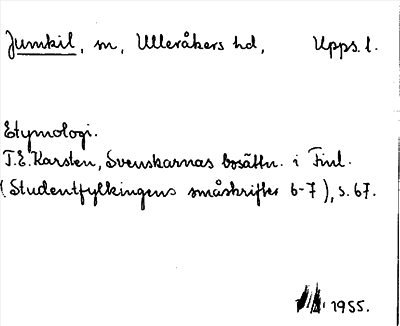 Jumkil, sn, Ulleråkers hd, Upps. l.
Etymologi.
T.E. Karsten, Svenskarnas bosättn. i Finl.
(Studentfylkingens småskrifter 6-7), s. 67.
1955.